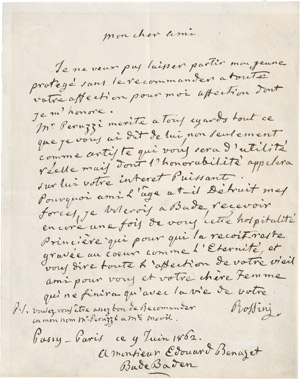 mon cher ami
Je ne veux pas laisser partir mon jeune
protégé sans le recommander a toute
votre affection pour moi affection dont
Je m'honore.
Mr Peruzzi merite a tous egards tout ce
que je vous ai dit de lui non seulement
comme artiste qui vous sera d'utilité
réelle mais dont l'honorabilité appelera
sur lui votre interet Puissant.
Pourquoi ami l'âge a t-il Détruit mes
forces, je Volerois a Bade recevoir
encore une fois de vous cette hospitalité
Princière qui pour qui la recoit reste
gravée au coeur comme l'Eternité, et
vous dire toute l'affection de votre vieil
ami pour vous et votre chère Femme
qui ne finira qu'avec la vie de votre
Rossini
P.S. Voulez vous être assez bon de Recomander
en mon nom Mr Peruzzi a
Passy-Paris ce 9 Juin 1862.
A Monsieur Edouard Benazet
Bade Baden